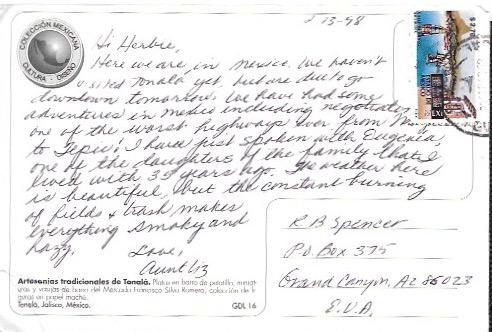 COLECCIÓN MEXICANA
CULTURA · DISEÑO
3-13-98
Hi Herbie,
Here we are, in Mexico. We haven't
visited Tonala yet, but are due to go
downtown tomorrow. We have had some
adventures in Mexico including negotiating
one of the worst highways ever from
to Tepic. I have just spoken with Eugenia,
one of the daughters of the family that I
lived with 35 years ago. The weather here
is beautiful, but the constant burning
of fields & trash makes
everything smoky and
hazy.
Love,
Aunt Liz
R B Spencer
P.O. Box 375
Grand Canyon, AZ 86023
E.U.A.
Artesanías tradicionales de Tonalá. Platos en barro de petatillo, miniat-
uras y vasijas de barro del Mercado Francisco Silva Romero, colección de fi-
guras en papel maché.
Tonalá, Jalisco, México.
GDL 16